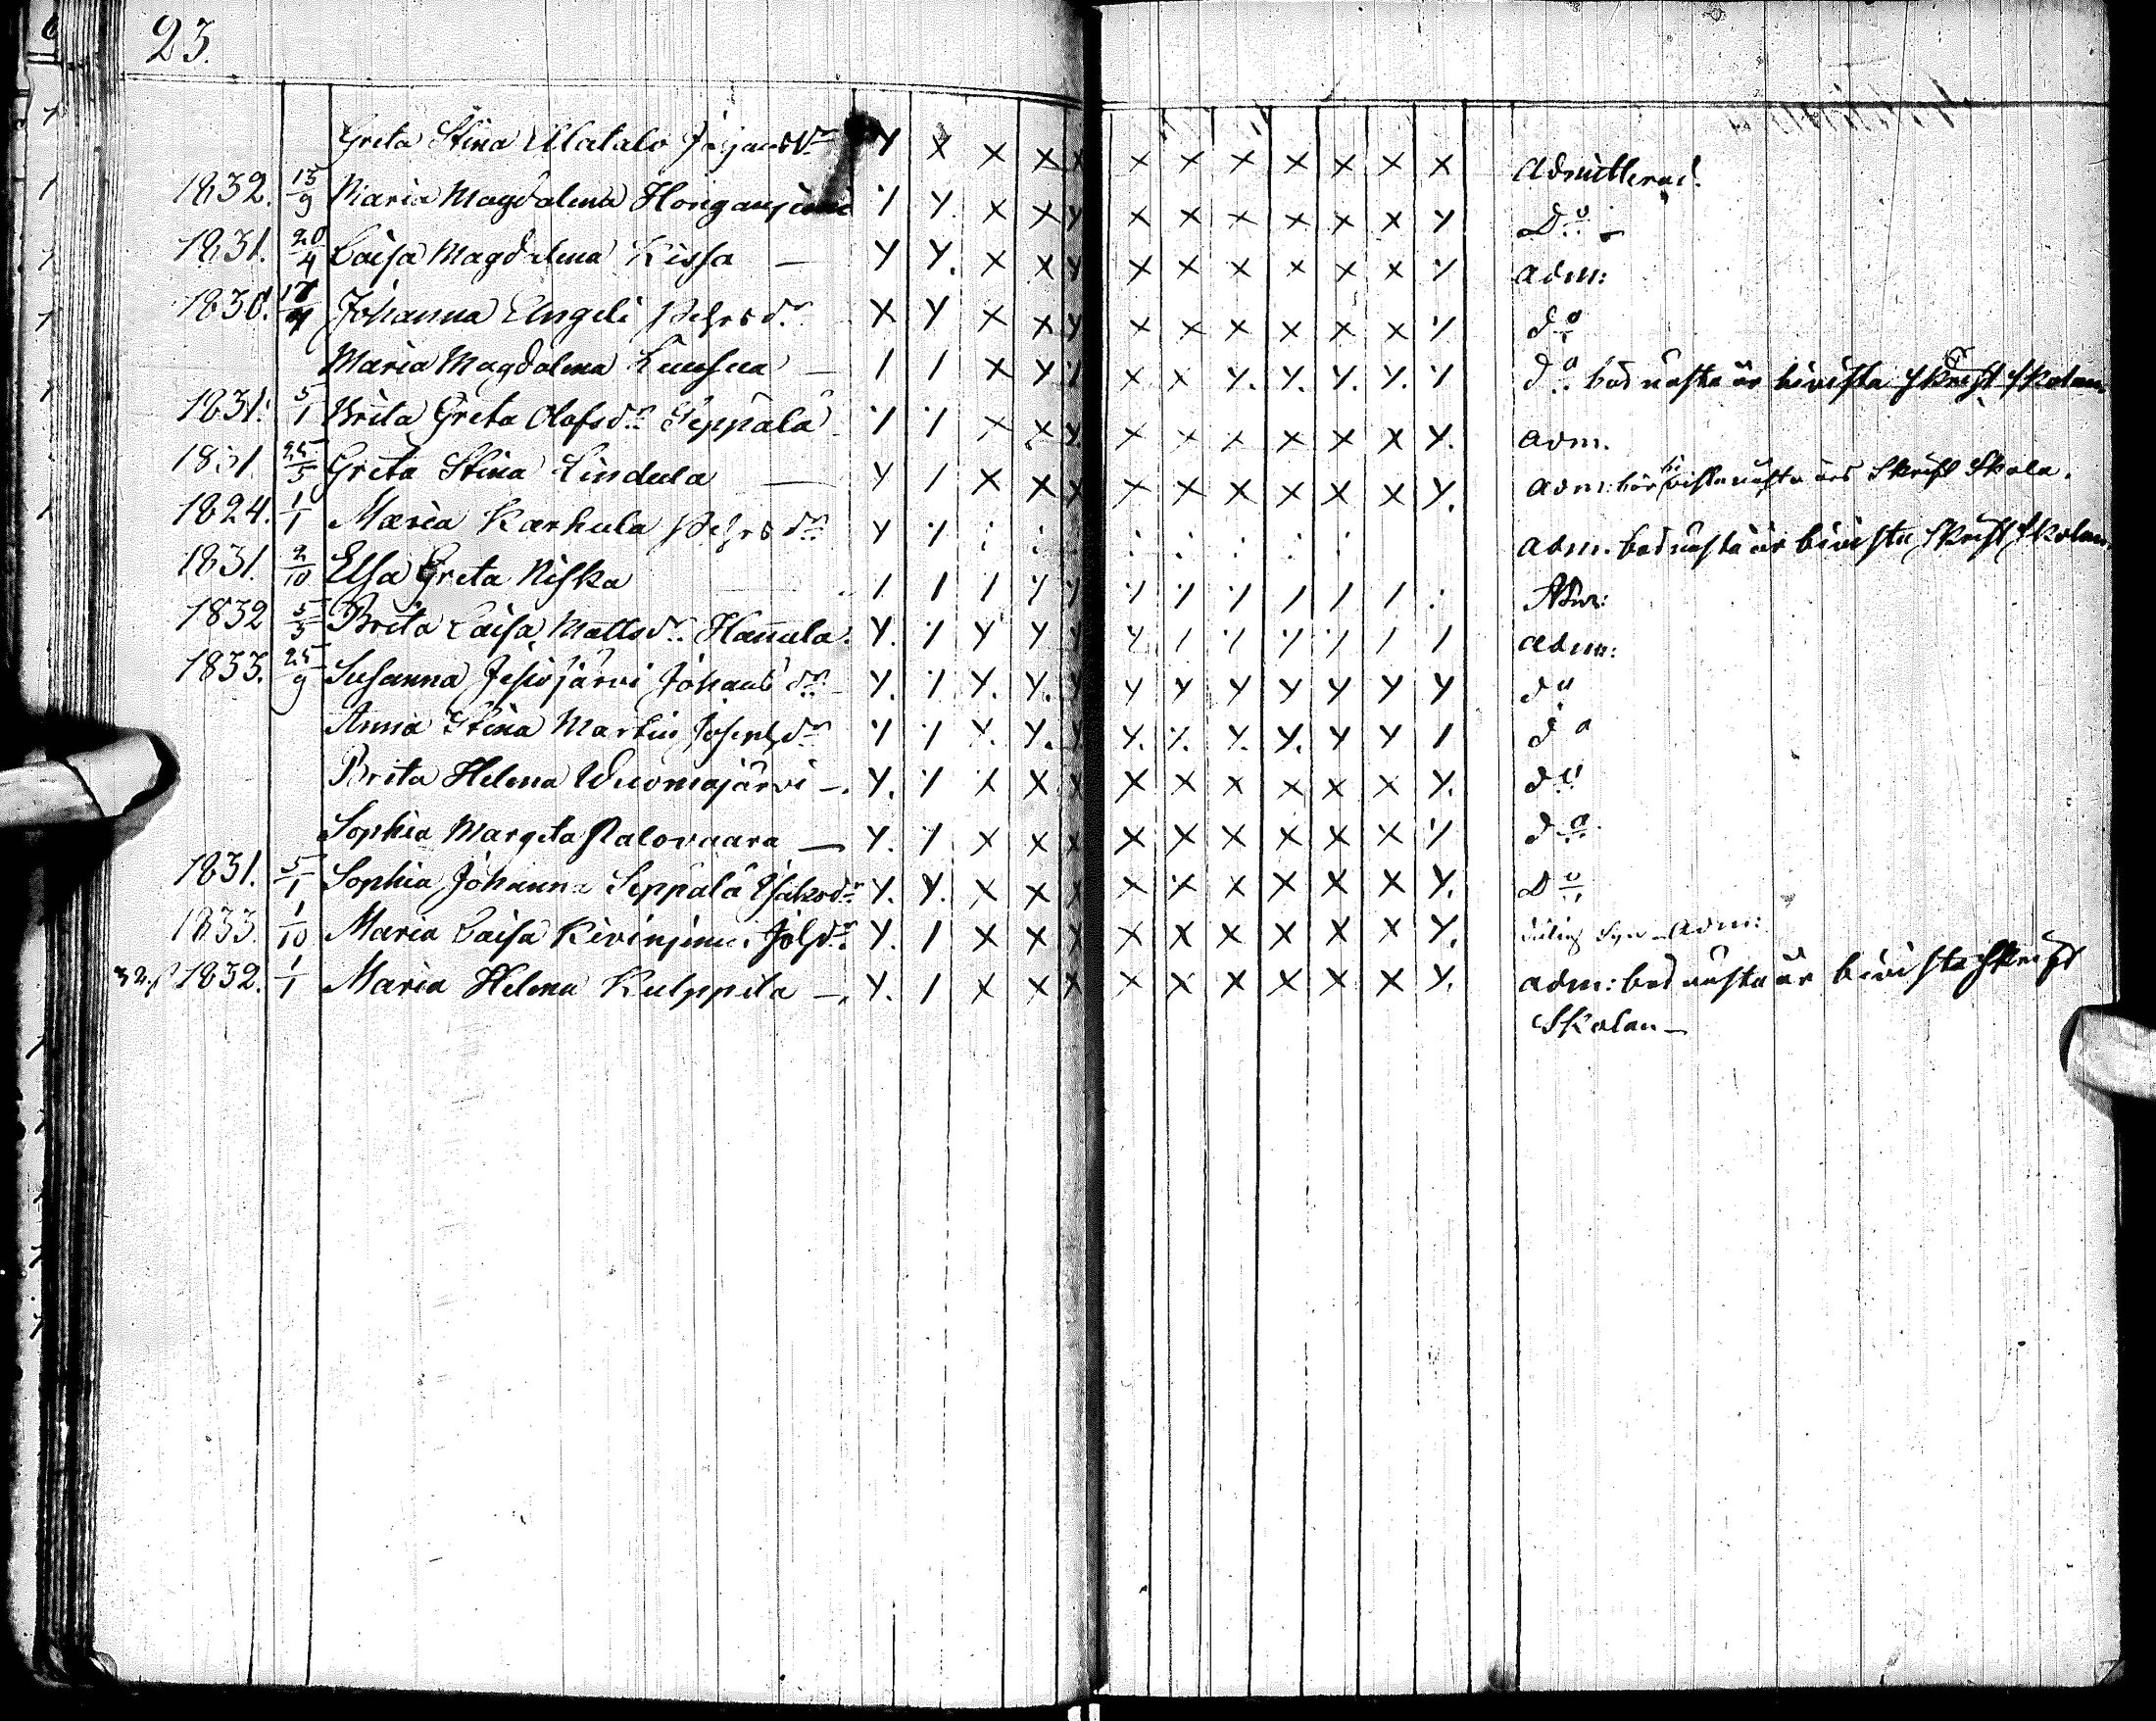 23.
Greta Stina Alatalo Y X X X X X X X X X X X Admitterad.
1832. 13/9 Maria Magdalena Y Y. X X Y X X X X X X Y Do –
1831. 20/4 Caisa Magdalena Kissa — Y Y. X X Y X X X X X X Y adm:
1830. Johanna Angeli Pehrs dr X Y X X Y X X X X X X Y do
Maria Magdalena — / / X Y X X Y. Y. Y. Y. Y do bör nästa år bivista skrift skolan
1831. 5/1 Brita Greta Olofsdr Seppälä Y Y X X Y. X X X X X X Y. adm.
1831. 25/5 Greta Stina Lindula — Y / X X X X X X X X X Y. adm: bör bivista nästa års Skrift Skola.
1824. 1/1 Maria Karhula Pehrs dr Y Y : : : : : : : : adm. bör nästa år bivista skrift skolan
1831. 2/10 Elsa Greta Niska / / / Y Y Y Y Y / / / : Adm:
1832 5/3 Brita Caisa Mattsdr Hannula. Y. Y Y Y Y Y / Y Y Y / / adm:
1833. 25/9 Susanna Jesiöjärvi Johans dr Y. Y Y. Y. Y Y Y Y Y Y Y Y do
Anna Stina Martin Josephsdr Y Y Y. Y. Y Y. Y. Y. Y. Y Y / do
Brita Helena Wuomajärvi —. Y. Y X X X X X X X X X Y. do
Sophia Margeta Palovaara — Y. Y X X X X X X X X X Y do
1831. 5/1 Sophia Johanna Seppälä Isaksdr Y. Y. X X X X X X X X X Y. Do
1833. 1/10 Maria Caisa Y. / X X X X X X X X X Y. Adm:
1832. 1/1 Maria Helena Kulppila —. Y. / X X X X X X X X X Y. adm: bör nästa år bivista skrift
Skolan —